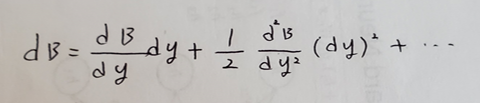 dB = dB/dy dy + 1/2 d²B/dy² (dy)² + ...